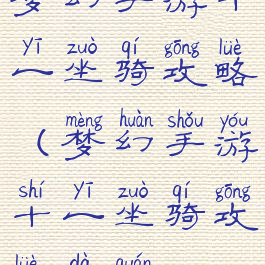 梦幻手游十
yī zuò qí gōng lüè
一坐骑攻略
mèng huàn shǒu yóu
（梦幻手游
shí yī zuò qí gōng
十一坐骑攻
lüè dà quán